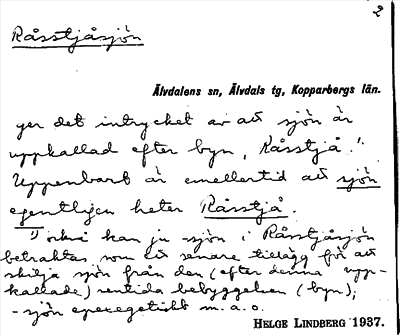 2
Råsstjåsjön
Älvdalens sn, Älvdals tg, Kopparbergs län.
ger det intrycket av att sjön är
uppkallad efter byn, Råsstjå.¹⁾
Uppenbart är emellertid att sjön
egentligen heter Råsstjå.
¹⁾ också kan ju -sjön i Råsstjåsjön
betraktas som ett senare tillägg för att
skilja sjön från den (efter denna upp-
kallade) sentida bebyggelsen (byn);
-sjön epexegetiskt m.a.o.
HELGE LINDBERG 1937.